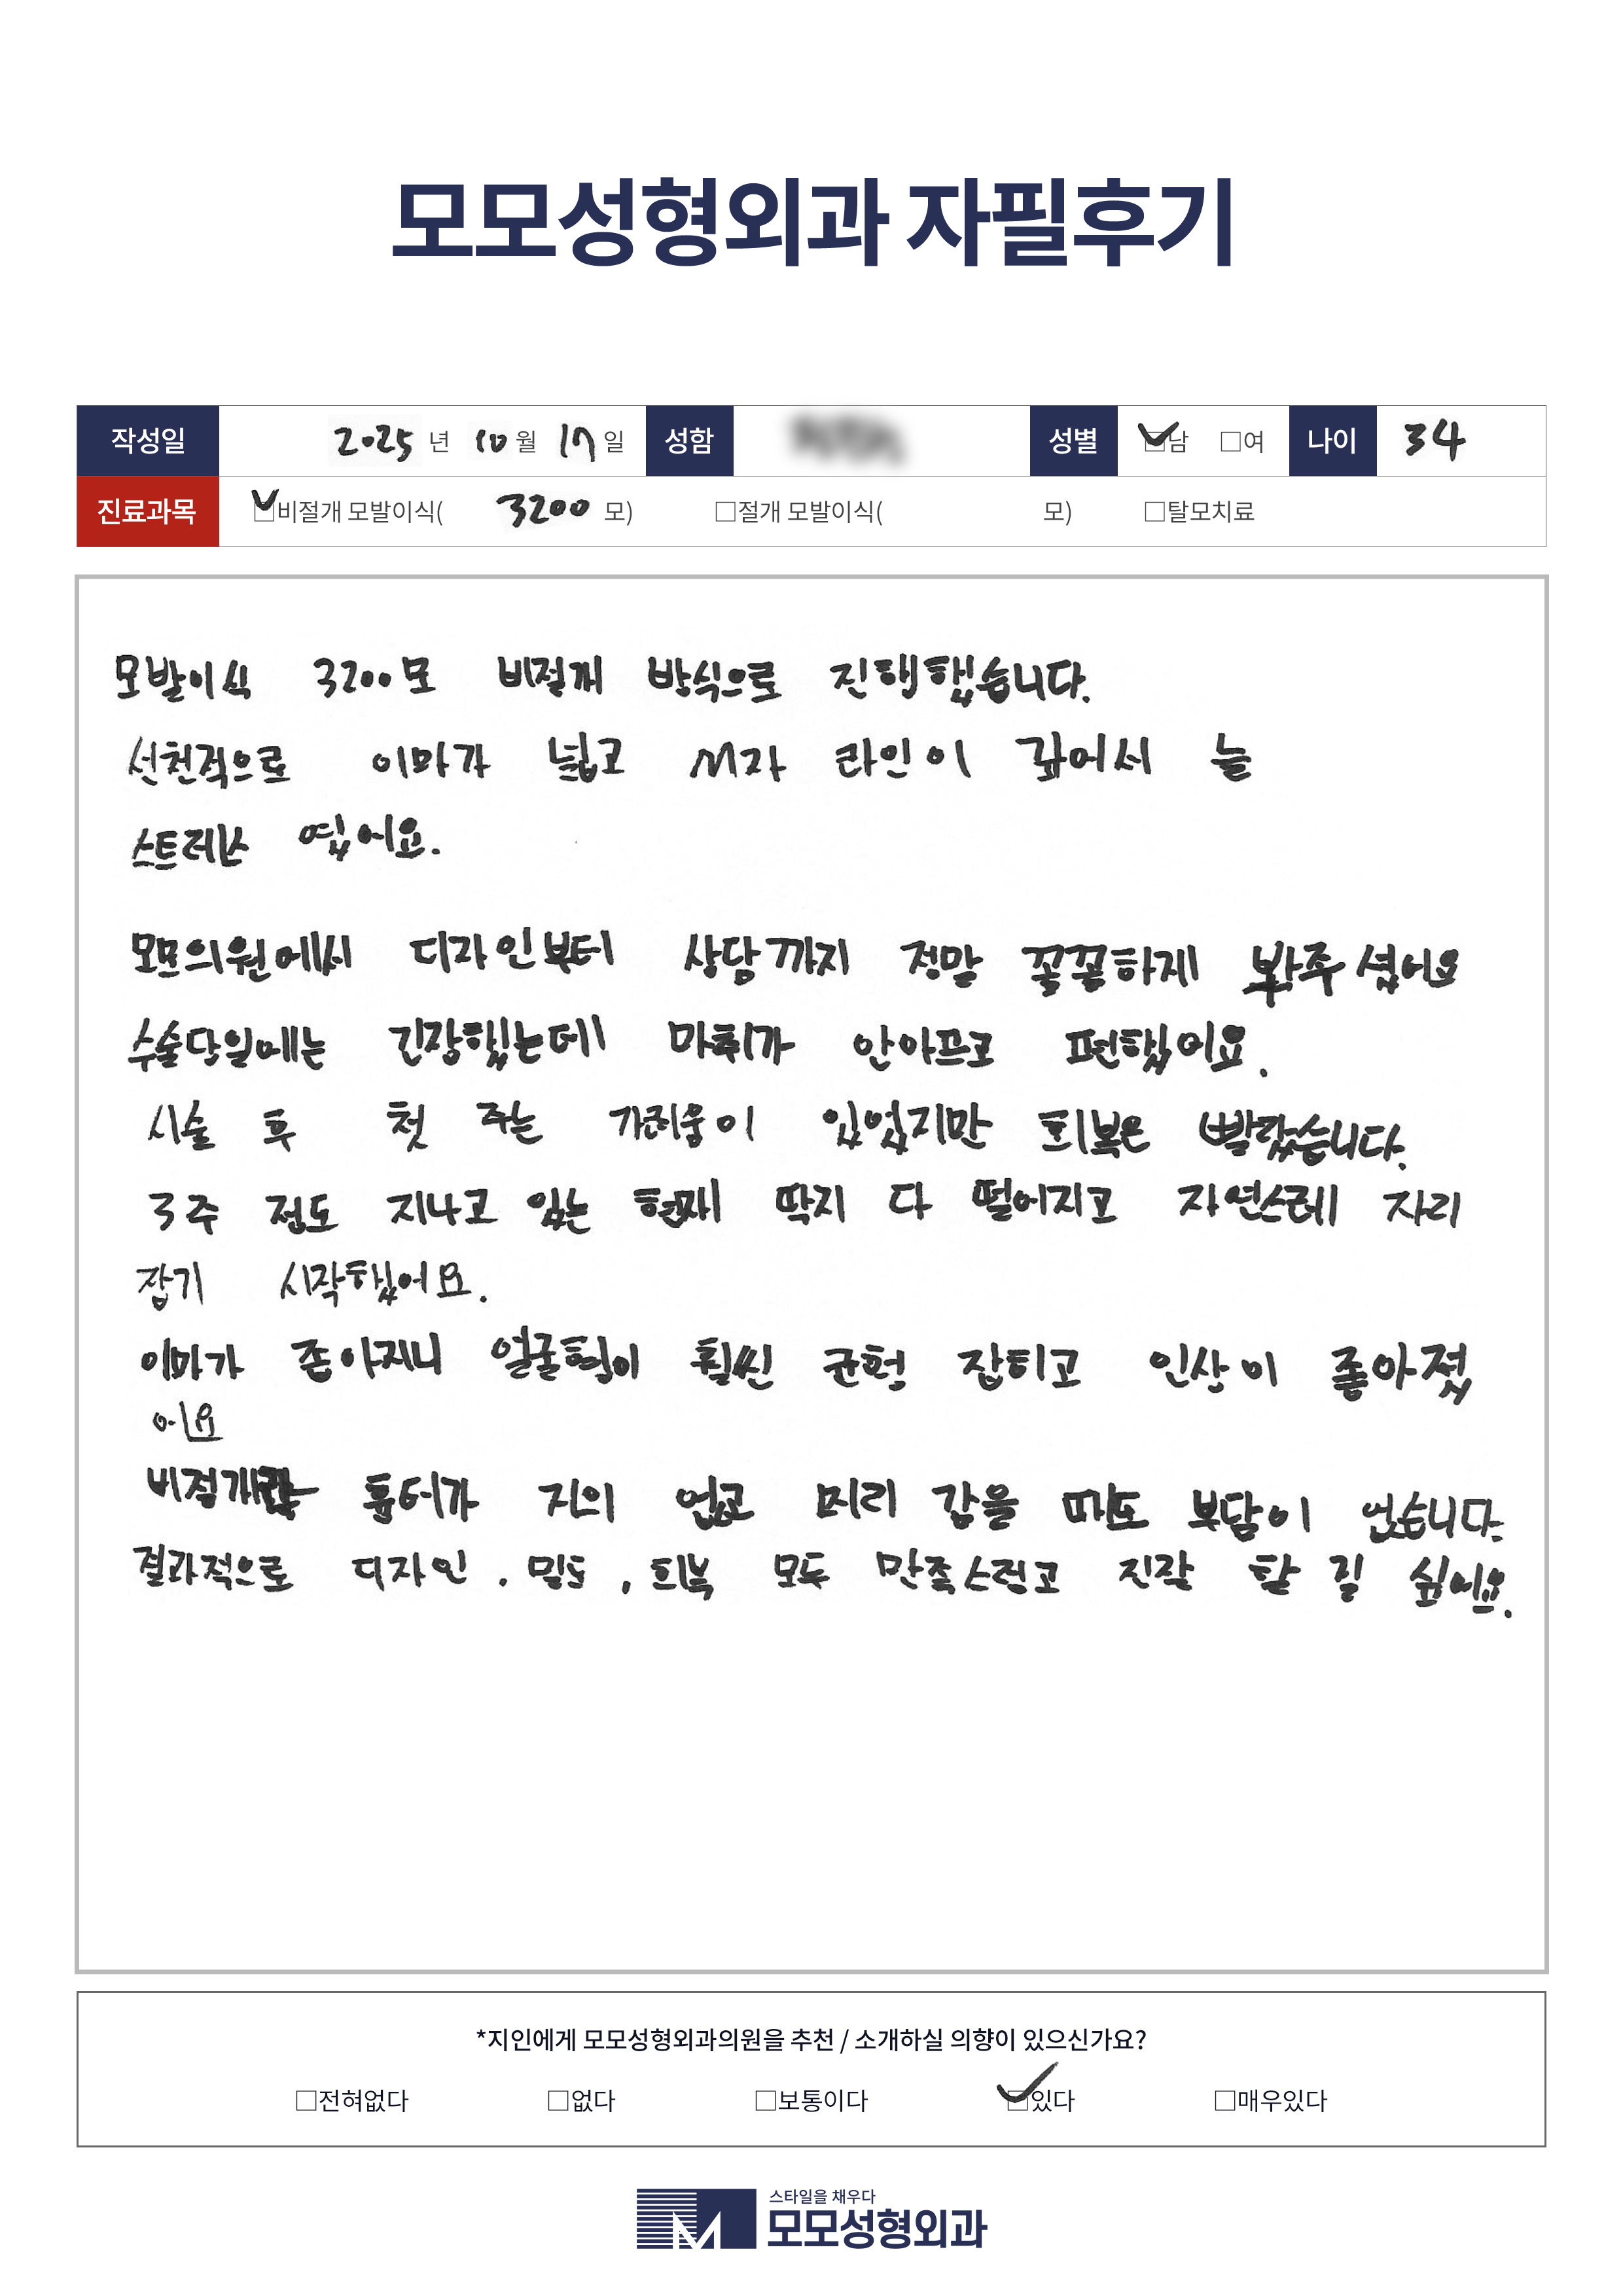 모모성형외과 자필후기
작성일 2025 년 10 월 17 일 성함 성별 ☑남 □여 나이 34
진료과목 ☑비절개 모발이식( 3200 모) □절개 모발이식( 모) □탈모치료
모발이식 3200모 비절개 방식으로 진행했습니다.
선천적으로 이마가 넓고 M자 라인이 깊어서 늘
스트레스 였어요.
모모의원에서 디자인부터 상담까지 정말 꼼꼼하게 봐주셨어요
수술당일에는 긴장했는데 마취가 안아프고 편했어요.
시술 후 첫 주는 가려움이 있었지만 회복은 빨랐습니다.
3주 정도 지나고 있는 현재 딱지 다 떨어지고 자연스레 자리
잡기 시작했어요.
이마가 좁아지니 얼굴형이 훨씬 균형 잡히고 인상이 좋아졌
어요
비절개라 흉터가 거의 없고 머리 감을 때도 부담이 없습니다.
결과적으로 디자인, 밀도, 회복 모두 만족스럽고 진작 할 걸 싶어요.
*지인에게 모모성형외과의원을 추천 / 소개하실 의향이 있으신가요?
□전혀없다 □없다 □보통이다 ☑있다 □매우있다
스타일을 채우다
모모성형외과